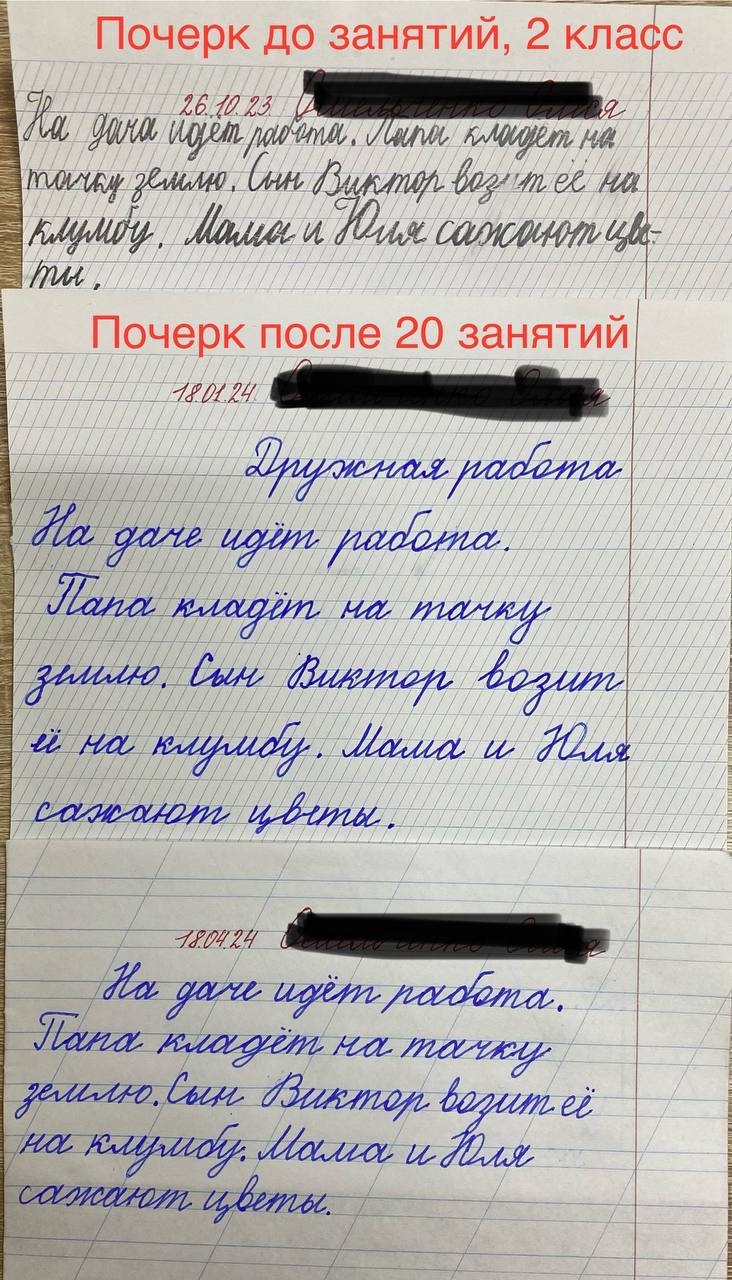 Почерк до занятий, 2 класс
26.10.23
На дача идёт работа. Папа кладёт на
тачку землю. Сын Виктор возит её на
клумбу. Мама и Юля сажают цве-
ты.
Почерк после 20 занятий
18.01.24
Дружная работа
На даче идёт работа.
Папа кладёт на тачку
землю. Сын Виктор возит
её на клумбу. Мама и Юля
сажают цветы.
18.04.24
На даче идёт работа.
Папа кладёт на тачку
землю. Сын Виктор возит её
на клумбу. Мама и Юля
сажают цветы.